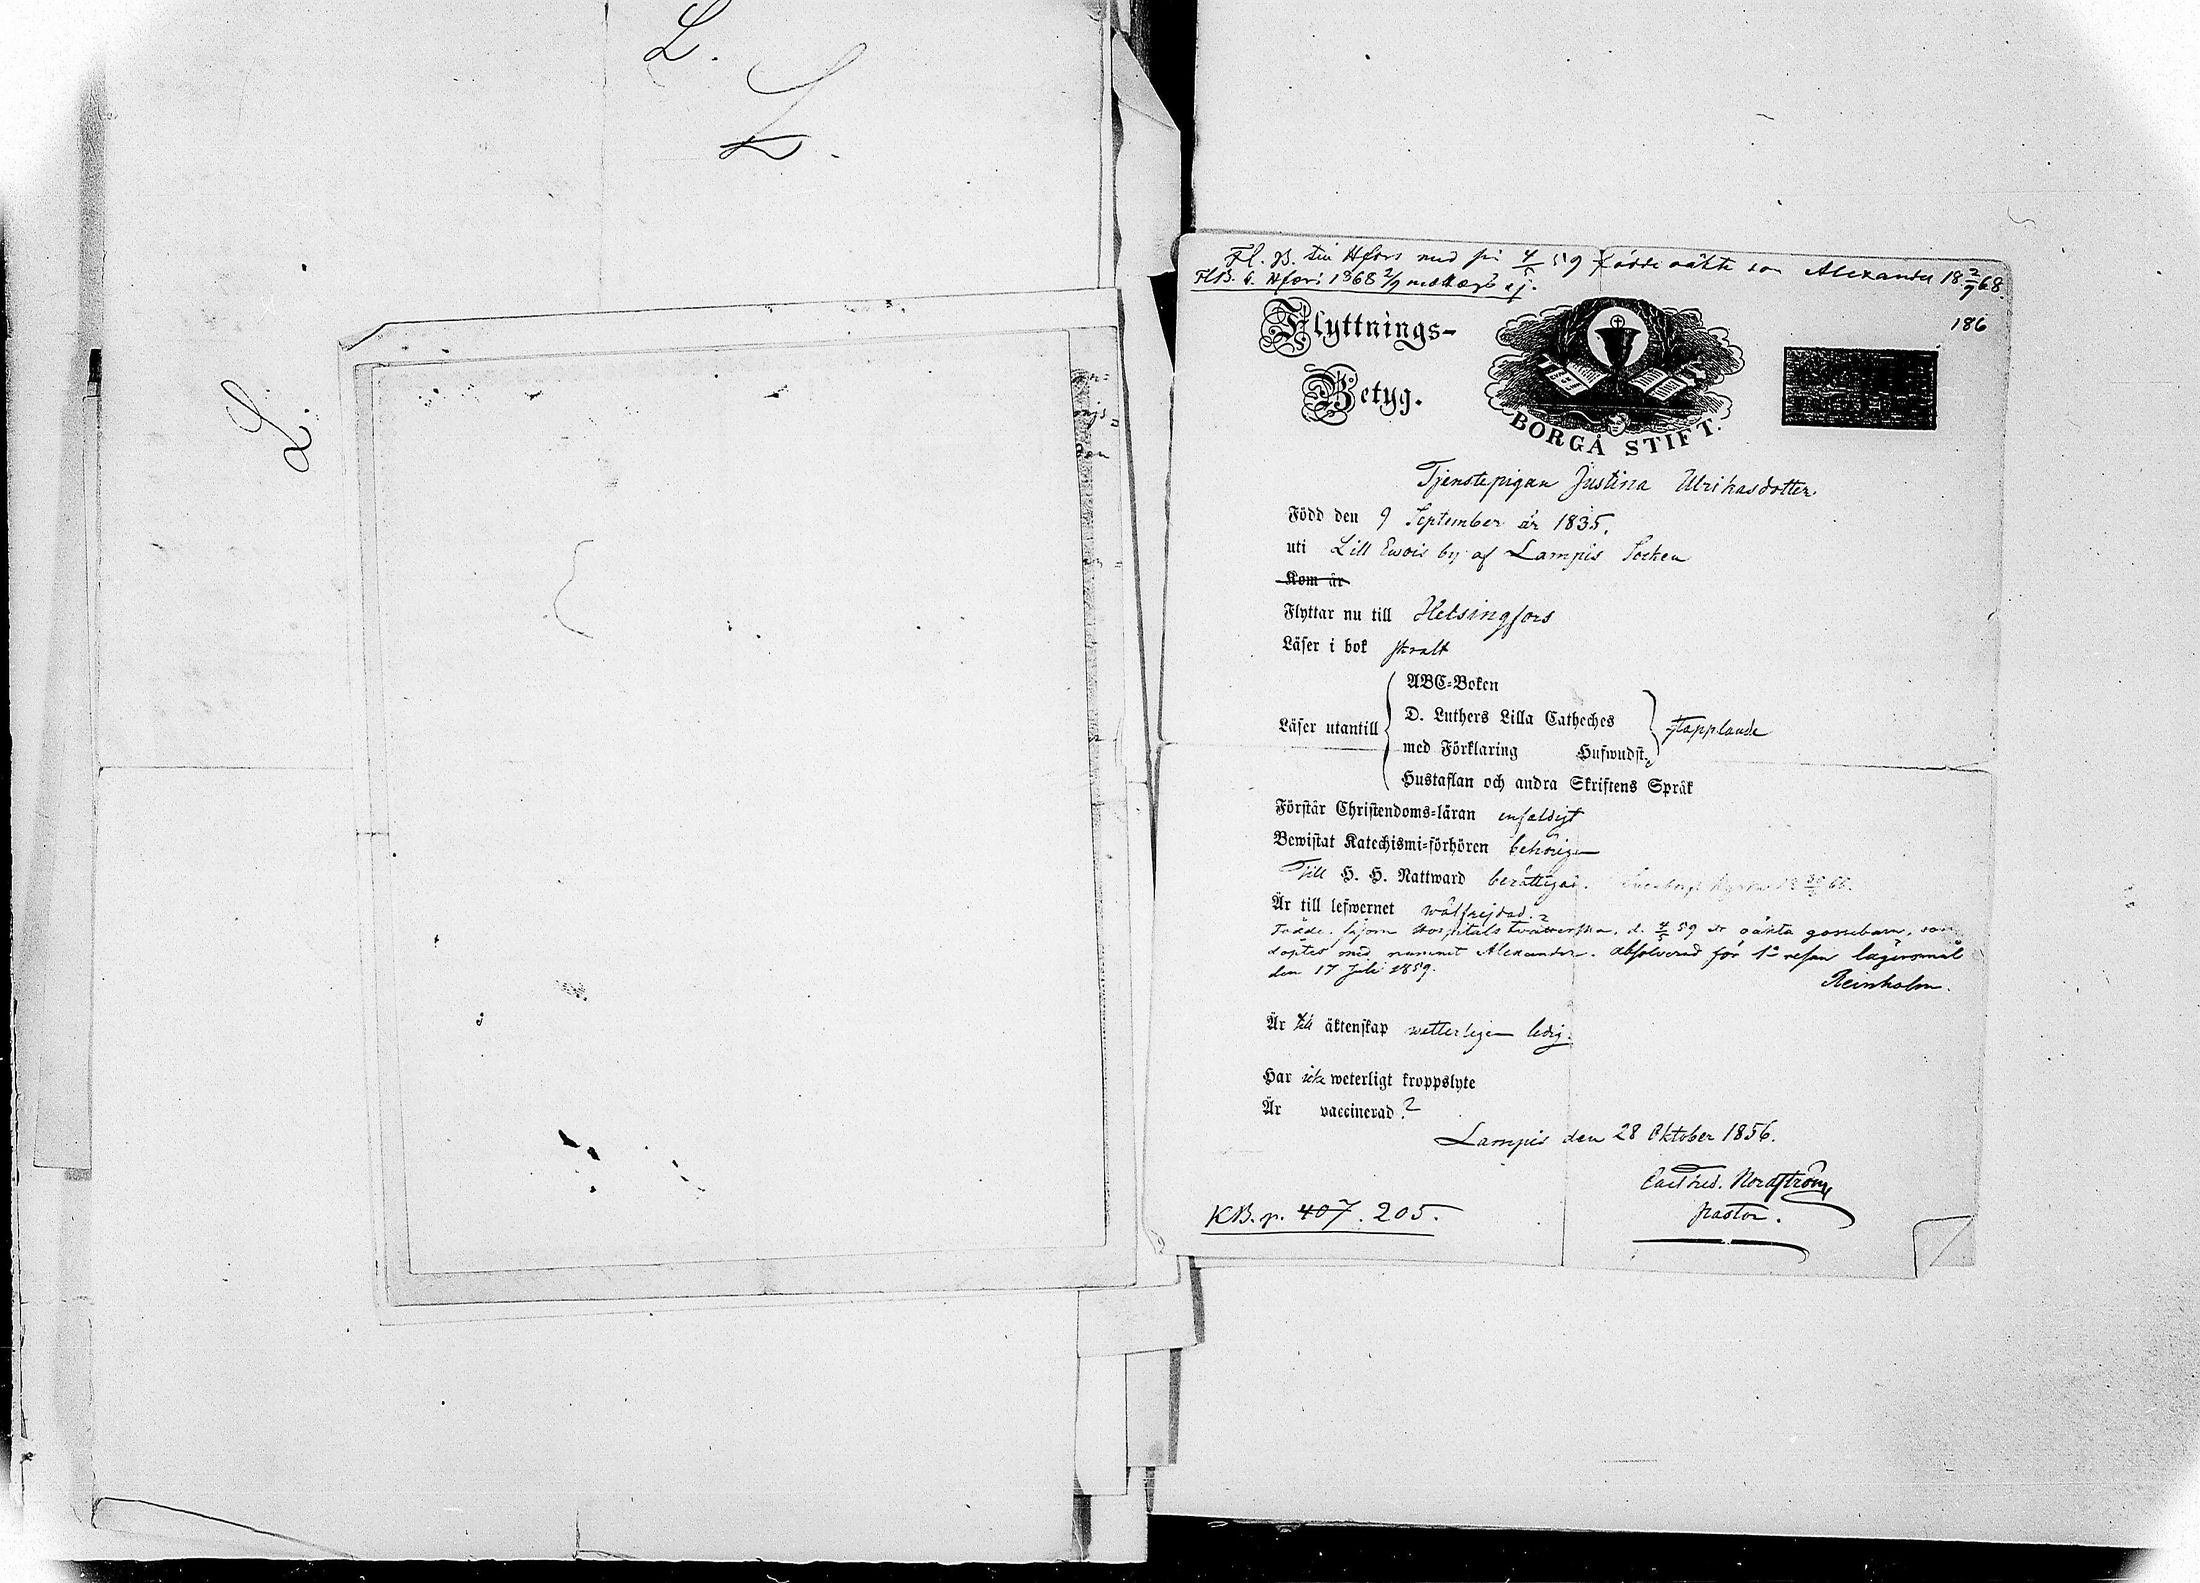 L.
L.
L.
Fl. B. till Hfors med på 4/5 59 födde oäkta son Alexander 18 2/9 68.
Hfors 1868 2/9
186
Flyttnings-
Betyg.
BORGÅ STIFT.
Tjenstepigan Justina Ulrikasdotter.
Född den 9 September år 1835.
uti Lill Ewois by af Lampis Socken
Kom år
Flyttar nu till Helsingfors
Läser i bok skralt
ABC-Boken
Läser utantill D. Luthers Lilla Catheches stapplande
med Förklaring Hufwudst.
Hustaflan och andra Skriftens Språk
Förstår Christendoms-läran enfaldigt
Bewistat Katechismi-förhören behörigen
Till H. H. Nattward berättigad.
Är till lefwernet wälfrejdad.
Födde, såsom Hospitals d. 4/5 59 ett oäkta gossebarn, som
döptes med namnet Alexander. Absolverad för 1a resan lägersmål
den 17 Juli 1859.
Reinholm.
Är till äktenskap wetterligen ledig.
Har icke weterligt kroppslyte
Är vaccinerad ?
Lampis den 28 Oktober 1856.
Carl Fred. Nordström
pastor.
KB. p. 407. 205.